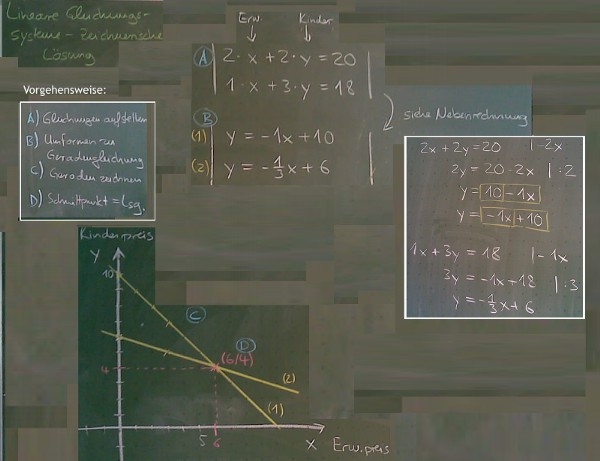 Lineare Gleichungs-
systeme - Zeichnerische
Lösung
Vorgehensweise:
A) Gleichungen aufstellen
B) Umformen zu
Geradengleichung
C) Geraden zeichnen
D) Schnittpunkt = Lsg.
Erw. Kinder
A 2·x + 2·y = 20
1·x + 3·y = 18
siehe Nebenrechnung
B
(1) y = -1x + 10
(2) y = -1/3x + 6
2x + 2y = 20 |-2x
2y = 20 - 2x | :2
y = 10 - 1x
y = -1x + 10
1x + 3y = 18 |-1x
3y = -1x + 18 | :3
y = -1/3x + 6
Kinderpreis
y
10
C
D
(6/4)
4
(2)
(1)
5 6
x Erw.preis